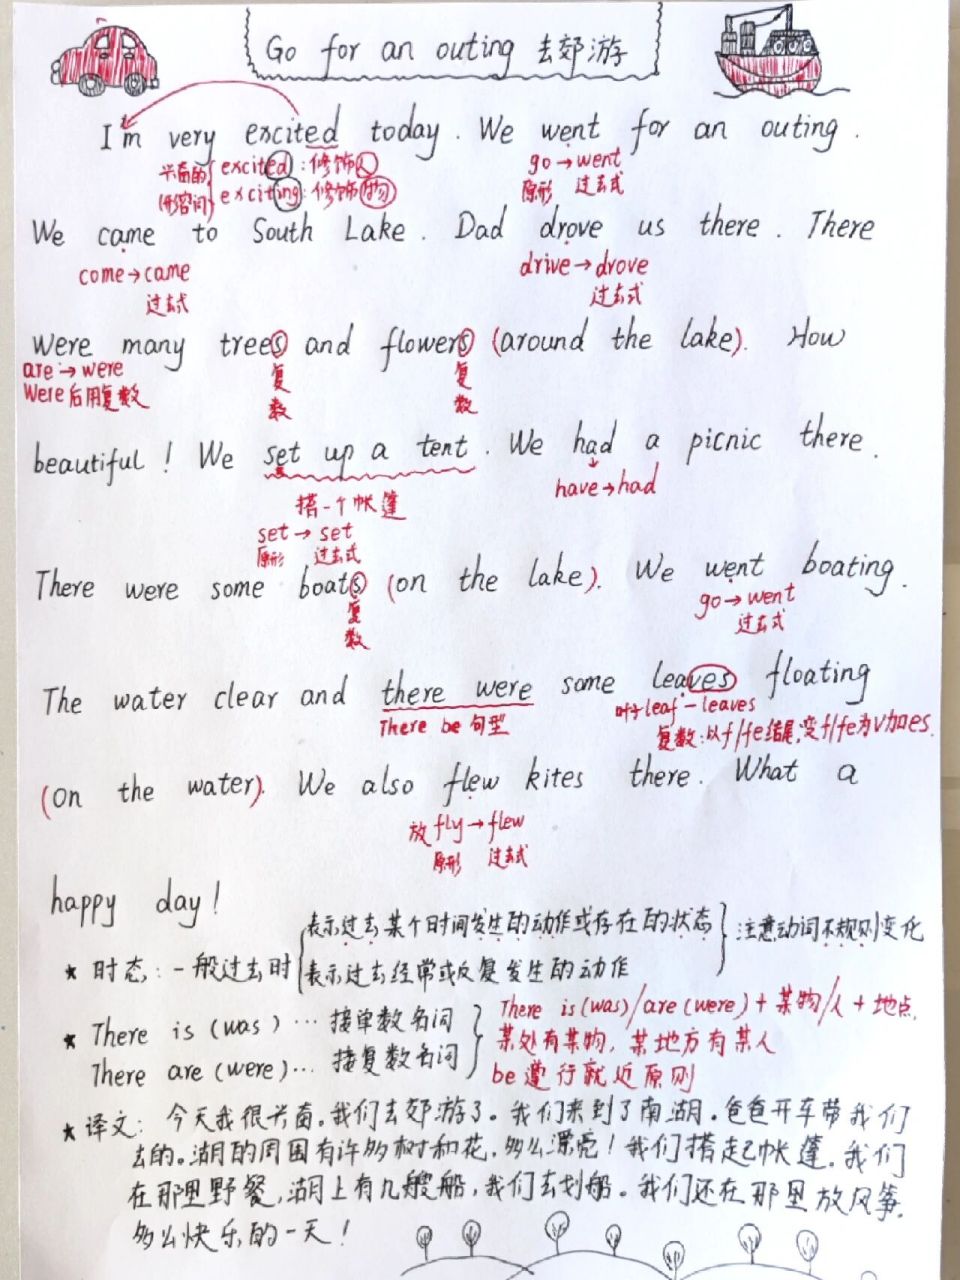 Go for an outing 去郊游
I'm very excited today. We went for an outing.
兴奋的 excited:修饰人 go→went
(形容词) exciting:修饰物 原形 过去式
We came to South Lake. Dad drove us there. There
come→came drive→drove
过去式 过去式
were many trees and flowers (around the lake). How
are→were 复数 复数
Were后用复数
beautiful! We set up a tent. We had a picnic there.
搭一个帐篷 have→had
set→set
原形 过去式
There were some boats (on the lake). We went boating.
复数 go→went
过去式
The water clear and there were some leaves floating
There be 句型 叶子leaf-leaves
复数:以f/fe结尾,变f/fe为v加es.
(on the water). We also flew kites there. What a
放 fly→flew
原形 过去式
happy day!
表示过去某个时间发生的动作或存在的状态
★ 时态:一般过去时 注意动词不规则变化
表示过去经常或反复发生的动作
★ There is (was)… 接单数名词 There is(was)/are(were)+某物/人+地点.
某处有某物,某地方有某人
There are (were)… 接复数名词 be遵行就近原则
★ 译文:今天我很兴奋。我们去郊游了。我们来到了南湖。爸爸开车带我们
去的。湖的周围有许多树和花,多么漂亮!我们搭起帐篷。我们
在那里野餐,湖上有几艘船,我们去划船。我们还在那里放风筝.
多么快乐的一天!